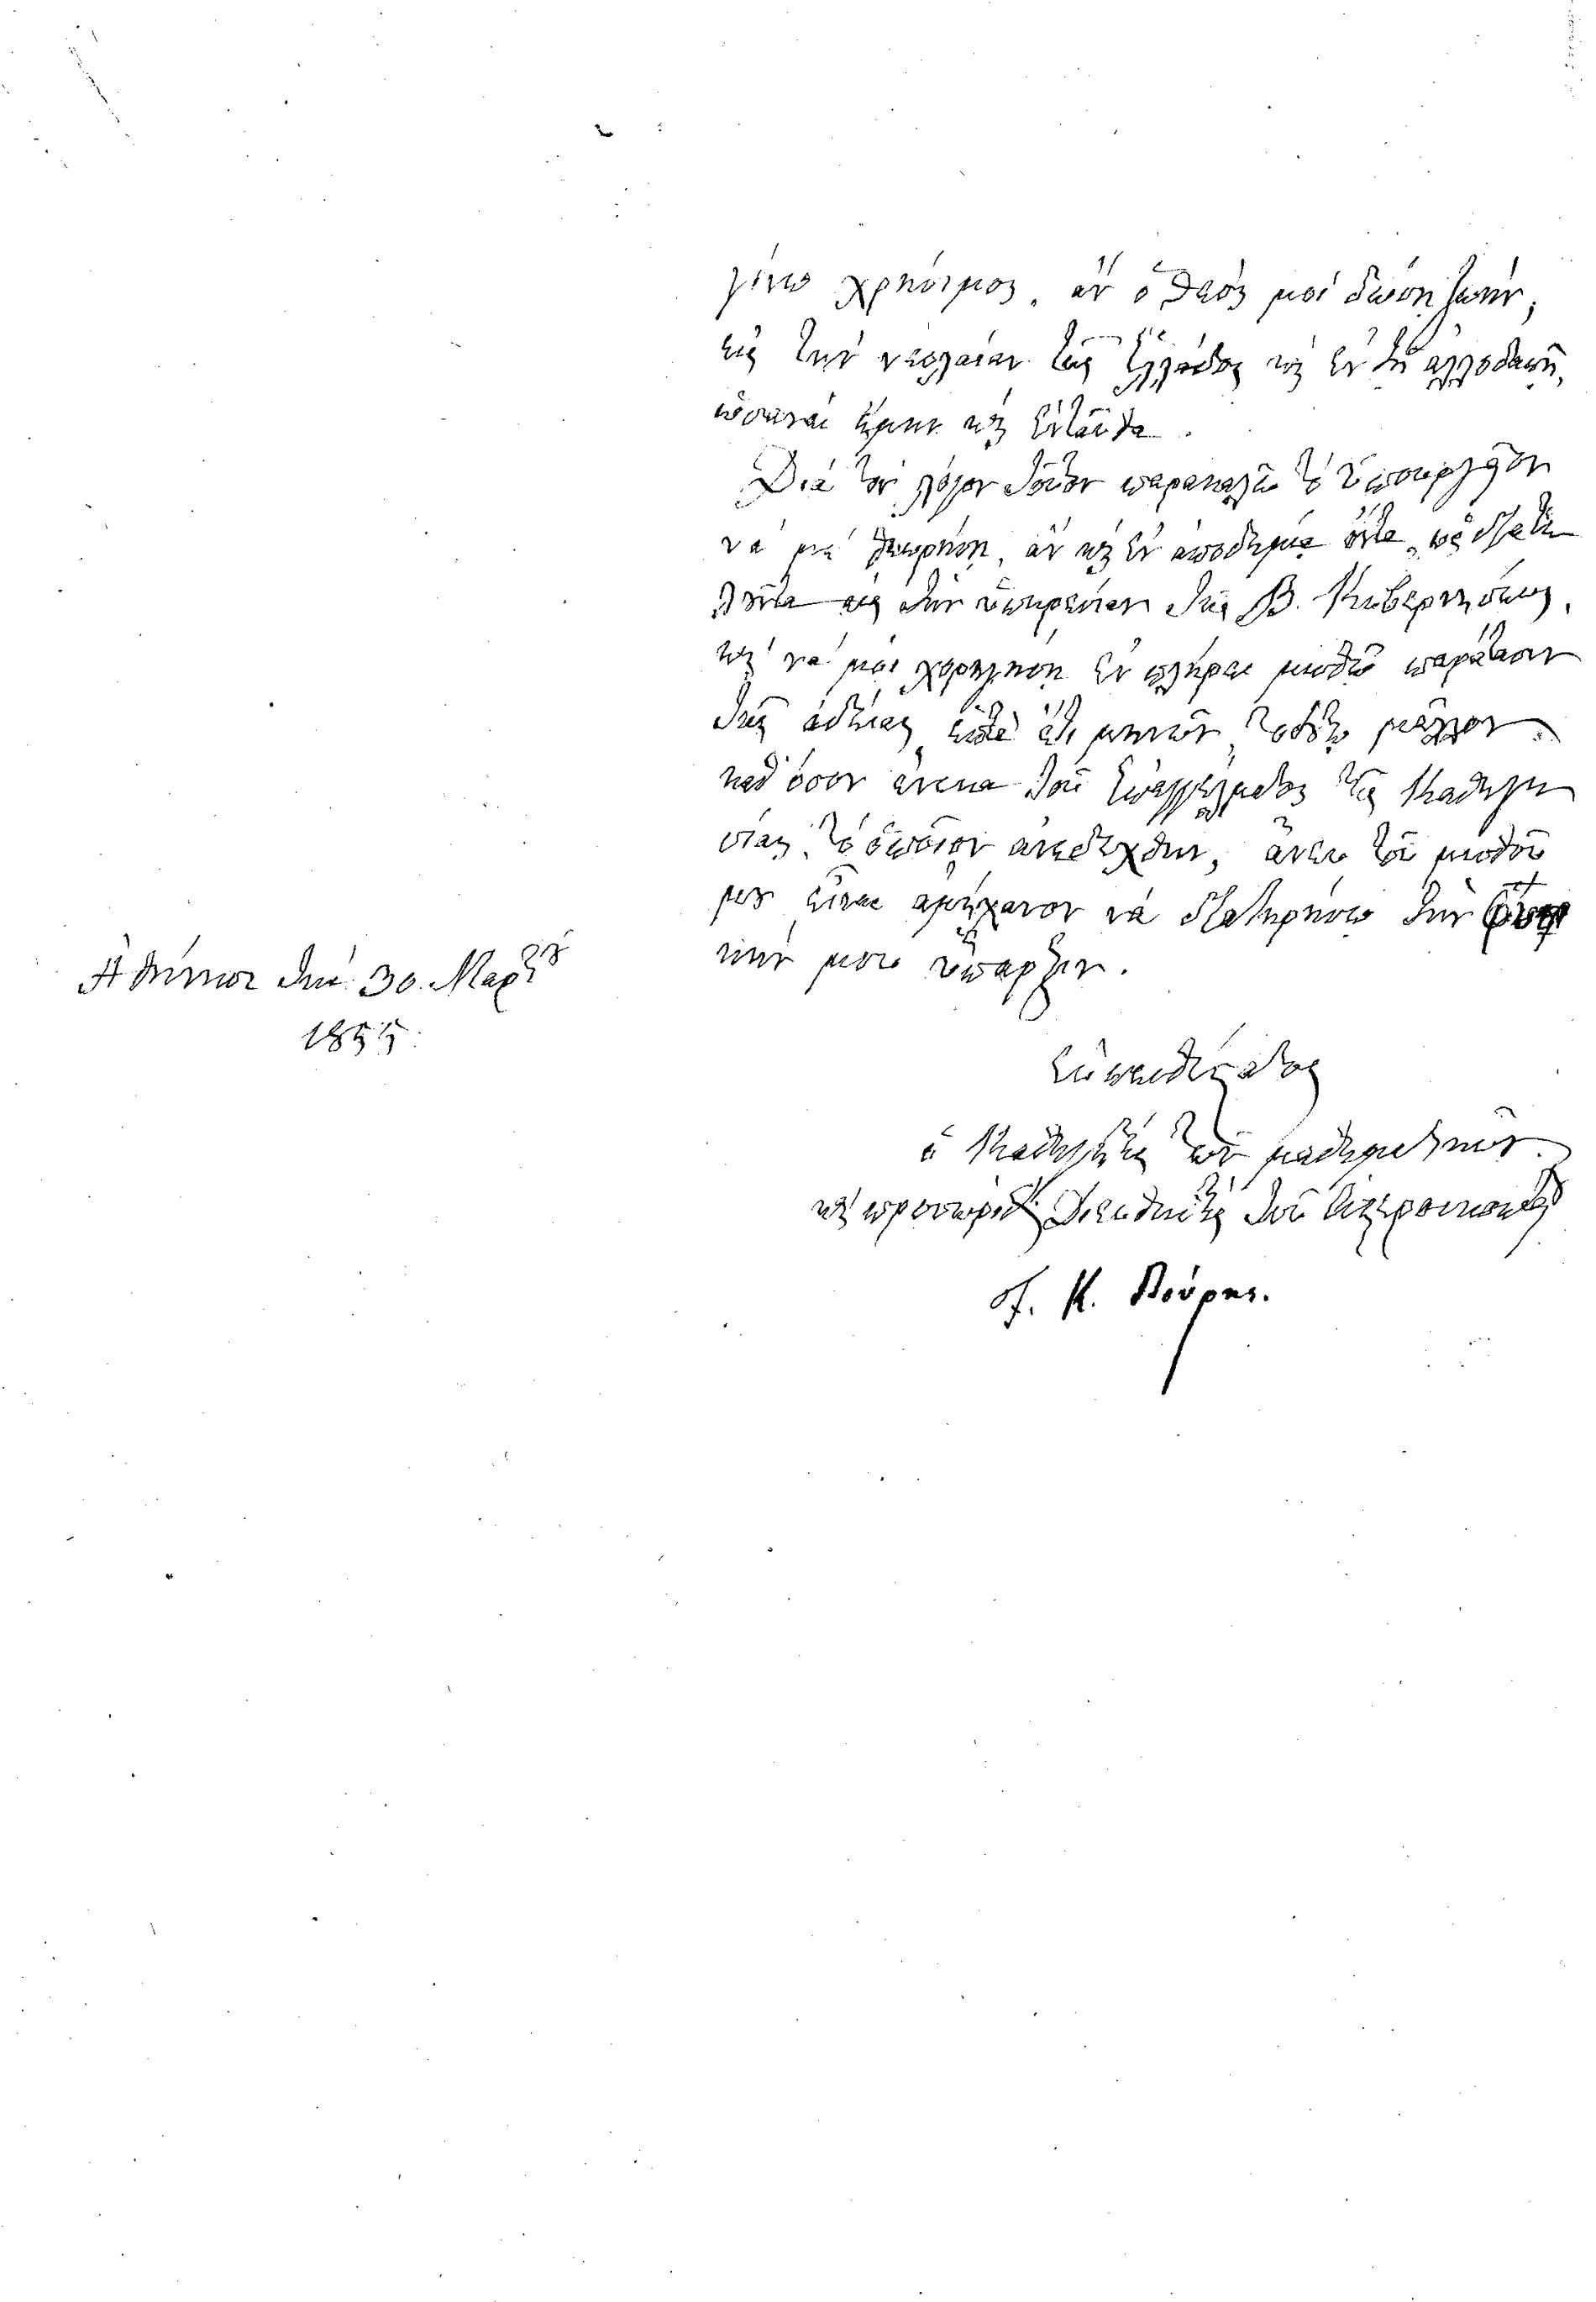 γίνω χρήσιμος, ἂν ὁ Θεός μοὶ δώσῃ ζωήν,
εἰς τὴν νεολαίαν τῆς Ἑλλάδος καὶ ἐν τῇ ἀλλοδαπῇ,
ὡσανεὶ ἤμην καὶ ἐνταῦθα.
Διὰ τὸν λόγον τοῦτον παρακαλῶ τὸ Ὑπουργεῖον
νὰ μὲ θεωρήσῃ, ἂν καὶ ἐν ἀποδημίᾳ ὄντα, ὡς διατε
λοῦντα εἰς τὴν ὑπηρεσίαν τῆς Β. Κυβερνήσεως,
καὶ νὰ μοὶ χορηγήσῃ ἐν πλήρει μισθῷ παράτασιν
τῆς ἀδείας μηνῶν, τοσούτῳ μᾶλλον
καθ' ὅσον ἕνεκα τοῦ ἐπαγγέλματος τῆς Καθηγε
σίας, τὸ ὁποῖον ἀνεδέχθην, ἄνευ τοῦ μισθοῦ
μου εἶναι ἀμήχανον νὰ διατηρήσω τὴν φυσι
κήν μου ὕπαρξιν.
Ἀθήνησι τὴν 30. Μαρτίου
1855.
Εὐπειθέστατος
ὁ Καθηγητὴς τῶν μαθηματικῶν
καὶ προσωρ. Διευθυντὴς τοῦ Ἀστεροσκοπείου
Γ. Κ. Βούρης.